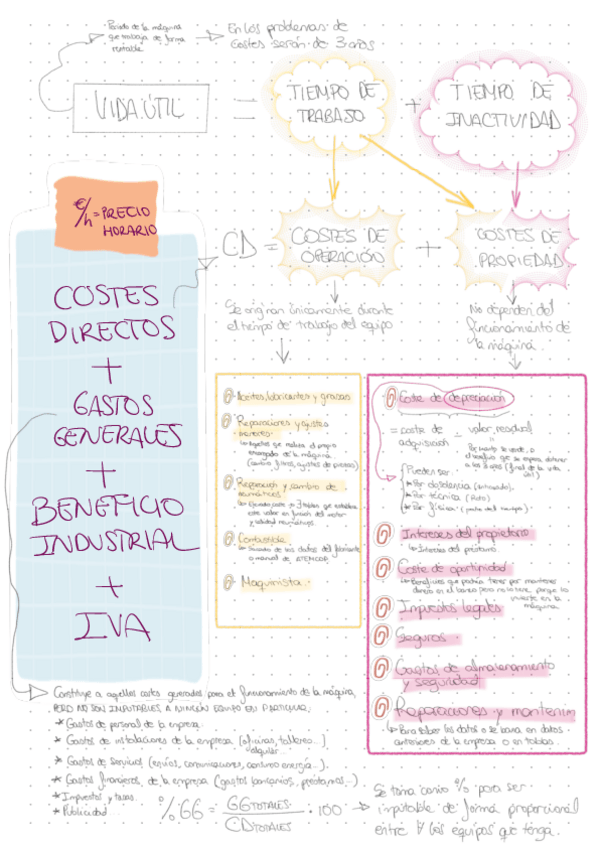 · Periodo de la máquina
que trabaja de forma
rentable.
En los problemas de
costes serán de 3 años
VIDA ÚTIL
=
TIEMPO DE
TRABAJO
+
TIEMPO DE
INACTIVIDAD
€/h = PRECIO
HORARIO
COSTES
DIRECTOS
+
GASTOS
GENERALES
+
BENEFICIO
INDUSTRIAL
+
IVA
CD =
COSTES DE
OPERACIÓN
+
COSTES DE
PROPIEDAD
Se originan únicamente durante
el tiempo de trabajo del equipo
No dependen del
funcionamiento de
la máquina.
Aceites, lubricantes y grasas
Reparaciones y ajustes
menores:
encargado de la máquina
(cambio filtros, ajustes de piezas)
Reparación y cambio de
neumáticos:
este valor en función del motor
y calidad neumáticos.
Combustible
o manual de ATEMCOP.
Maquinista.
Coste de depreciación
= coste de
adquisición
-
valor residual
Pueden ser:
Por obsolencia
Por técnica
Por física
Intereses del propietario
Interés del préstamo.
Coste de oportunidad
Beneficios que podría tener por mantener
dinero en el banco pero no lo tiene porque lo
invierte en la
máquina.
Impuestos legales
Seguros.
Gastos de almacenamiento
y seguridad.
Reparaciones y mantenim
Para saber los datos o se basa en datos
anteriores de la empresa o en tablas.
Constituye a aquellos costes generados para el funcionamiento de la máquina,
PERO NO SON IMPUTABLES A NINGÚN EQUIPO EN PARTICULAR.
* Gastos de personal de la empresa.
* Gastos de instalaciones de la empresa (oficinas, talleres...)
alquiler...
* Gastos de servicios (envíos, comunicaciones, consumo energía...).
* Gastos financieros de la empresa (gastos bancarios, préstamos...)
* Impuestos y tasas.
* Publicidad.
%GG = GG TOTALES / CD TOTALES · 100
Se toma como % para ser
imputable de forma proporcional
entre ∀ los equipos que tenga.